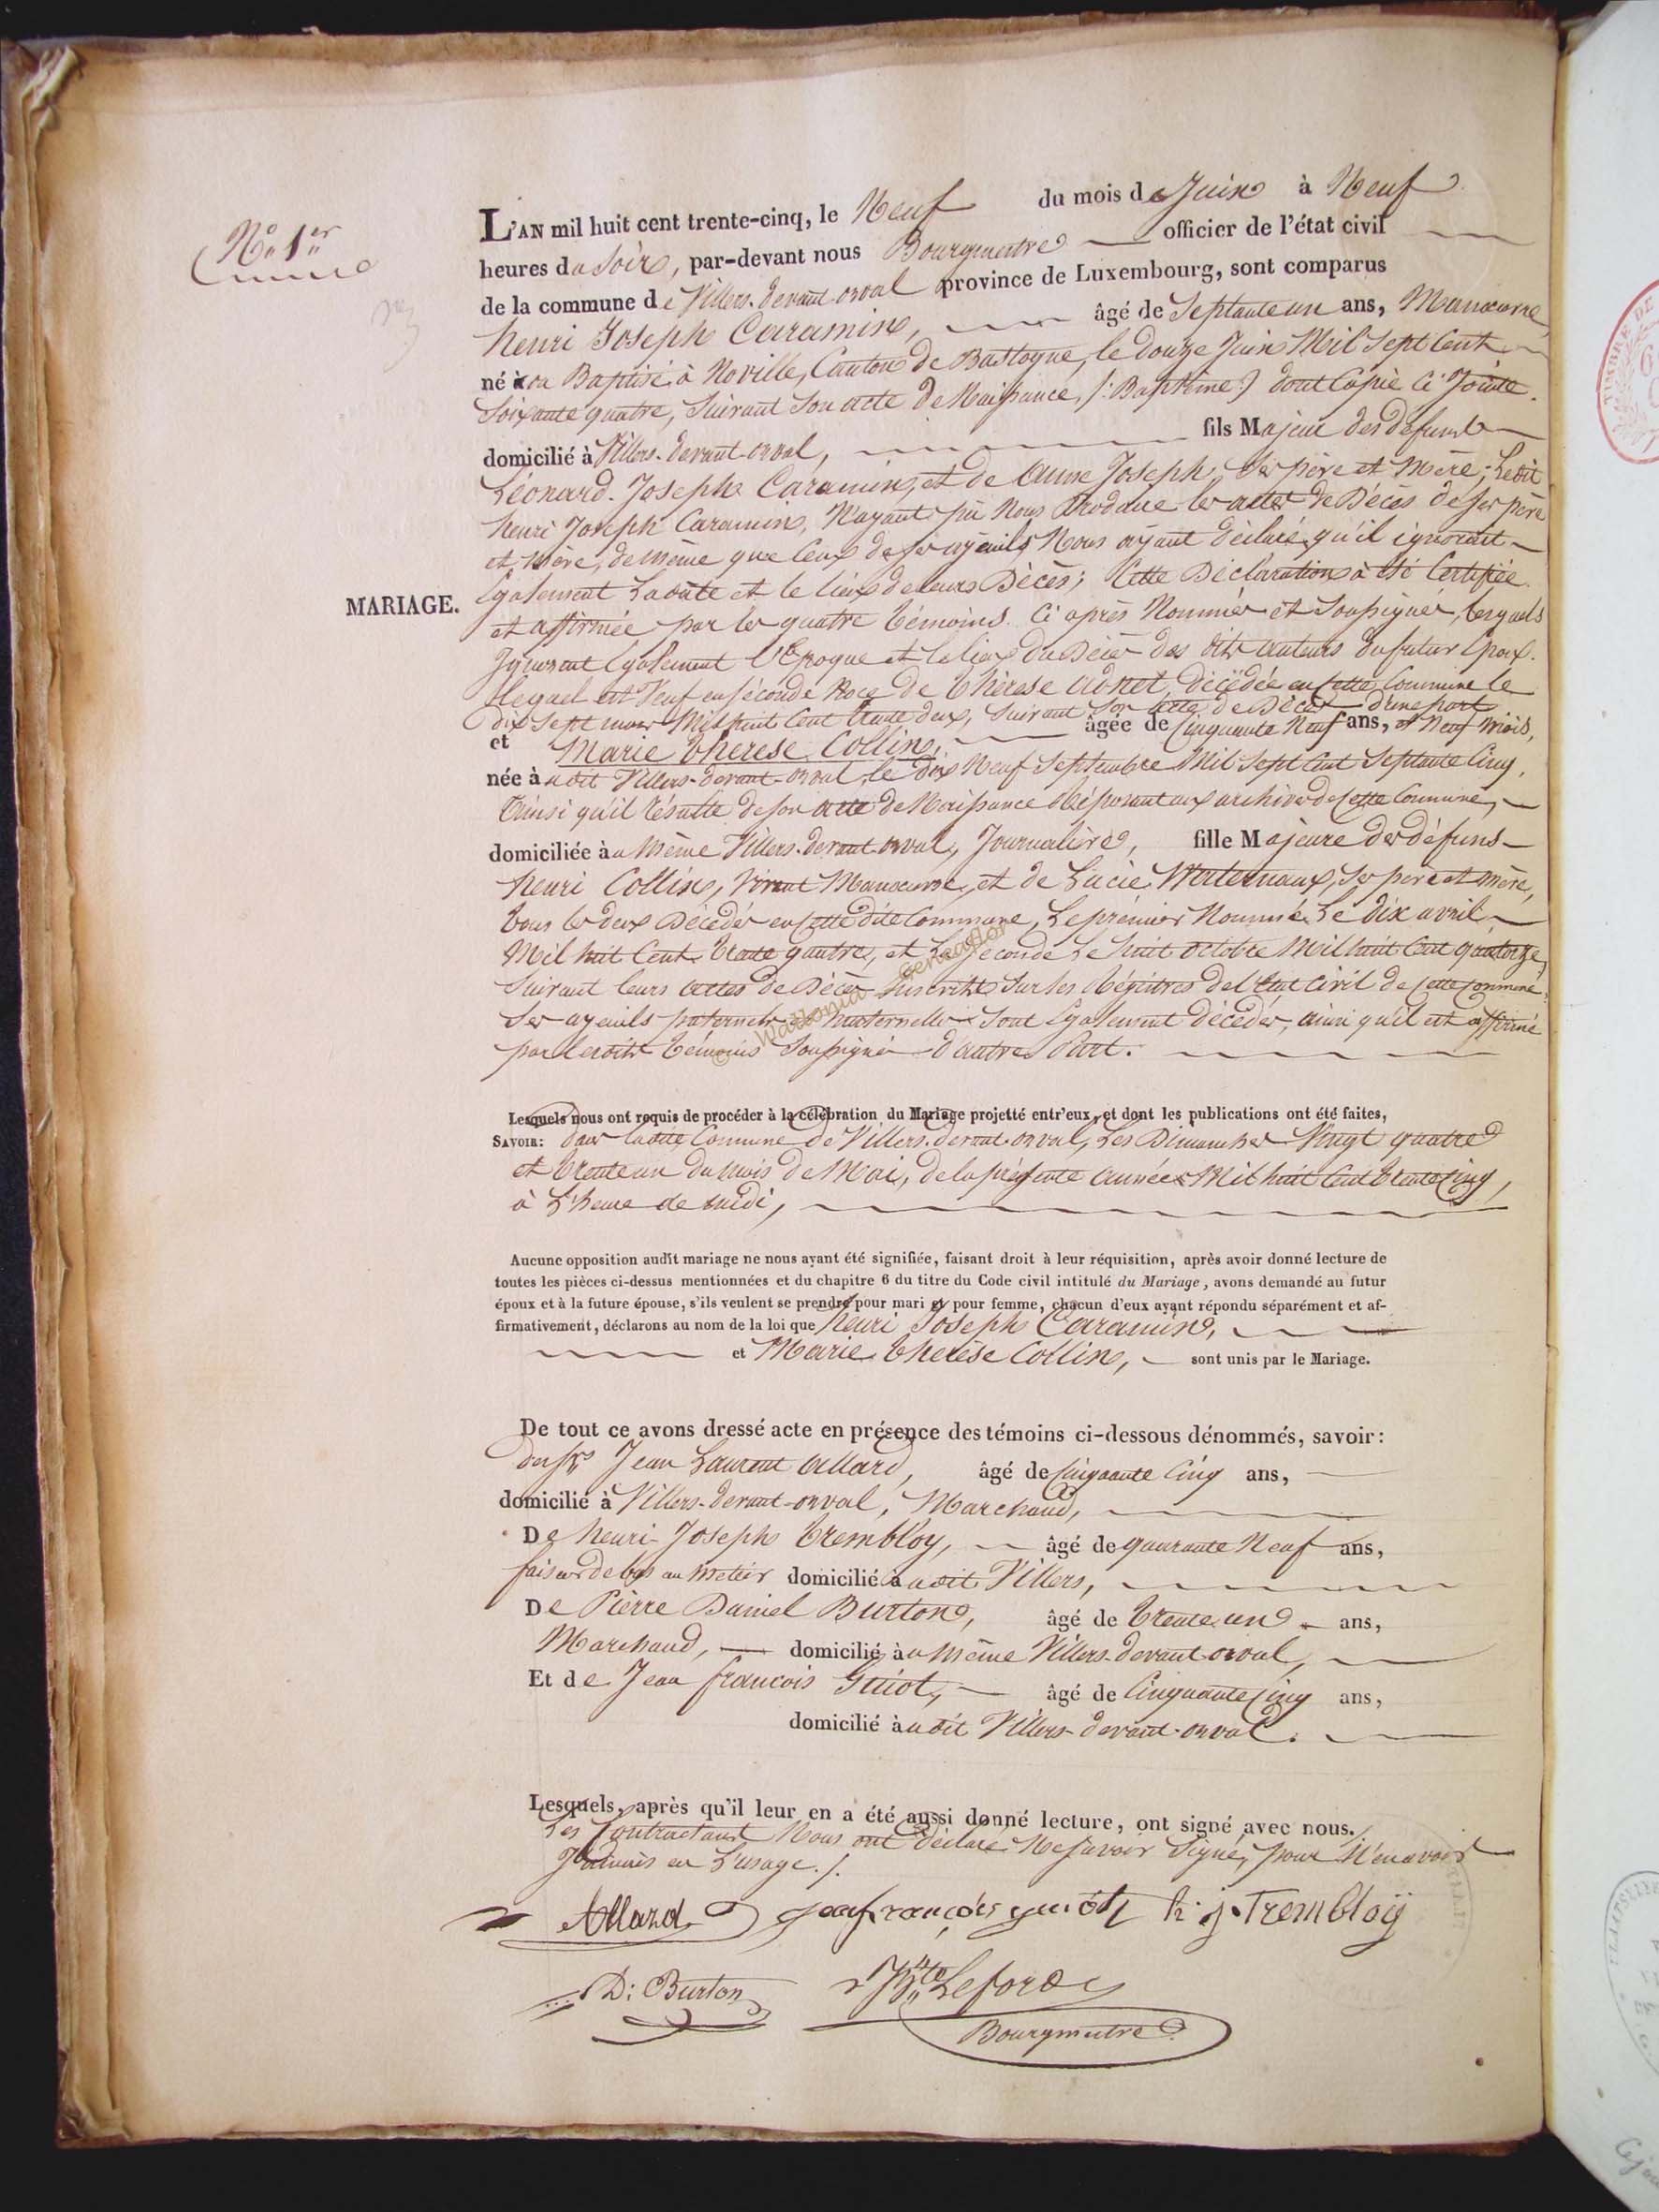 N° 1er
MARIAGE.
L'AN mil huit cent trente-cinq, le Neuf du mois de Juin à Neuf
heures du Soir, par-devant nous Bourgmestre officier de l'état civil
de la commune de Villers-devant-orval province de Luxembourg, sont comparus
henri Joseph Caramin, âgé de Septante un ans, Manœuvre,
né à ou Baptisé à Noville, Canton de Bastogne, le douze Juin Mil Sept Cent
Soixante quatre, Suivant Son acte de Naissance, /: Baptême :/ dont Copie Ci Jointe.
domicilié à Villers-devant-orval, fils Majeur des defunts
Léonard-Joseph Caramin, et de Anne Joseph, Ses père et Mère; Ledit
henri Joseph Caramin, N'ayant pû Nous Produire les actes de Décès de Ses père
et Mère, de même que Ceux de Ses ayeuils Nous ayant déclaré qu'il ignorait
Egalement La date et le lieu de leurs Décès; Cette Déclaration à été Certifiée
et affirmée par les quatre témoins Ci après Nommés et Soussignés, lesquels
Ignorant Egalement l'Epoque et le lieu du Décès des dits auteurs du futur Epoux.
lequel est Veuf en séconde Noce de thérese adnet, décédée en Cette Commune le
dix Sept mars Mil huit Cent trente deux, Suivant Son acte de Décès d'une part
et Marie therese Collin, âgée de Cinquante Neuf ans, et Neuf Mois,
née audit Villers-devant-orval, le dix Neuf Septembre Mil Sept Cent Septante Cinq,
Ainsi qu'il résulte de son acte de Naissance déposant aux archives de Cette Commune,
domiciliée au Même Villers-devant-orval, Journalière, fille Majeure des défuns
henri Collin, Vivant Manœuvre, et de Lucie Waternaux, Ses père et mère,
tous les deux Décédés en Cette dite Commune, Le prémier Nommé Le dix avril
Mil huit Cent trente quatre, et La Seconde Le huit octobre Mil huit Cent quatorze,
Suivant leurs actes de Décès inscrits Sur les Régitres de l'Etat Civil de Cette Commune.
Ses ayeuils paternels et maternelles Sont Egalement décédés, ainsi qu'il est affirmé
par lesdits témoins Soussignés d'autre Part.
© Wallonia Geneaflor
Lesquels nous ont requis de procéder à la célébration du Mariage projetté entr'eux, et dont les publications ont été faites,
SAVOIR: dans ladite Commune de Villers-devant-orval, Les Dimanches Vingt quatre
et trente un du Mois de Mai, de la présente année Mil huit Cent trente Cinq,
à L'heure de midi,
Aucune opposition audit mariage ne nous ayant été signifiée, faisant droit à leur réquisition, après avoir donné lecture de
toutes les pièces ci-dessus mentionnées et du chapitre 6 du titre du Code civil intitulé du Mariage, avons demandé au futur
époux et à la future épouse, s'ils veulent se prendre pour mari et pour femme, chacun d'eux ayant répondu séparément et af-
firmativement, déclarons au nom de la loi que henri Joseph Caramin,
et Marie therèse Collin, sont unis par le Mariage.
De tout ce avons dressé acte en présence des témoins ci-dessous dénommés, savoir:
du Sr Jean Laurent Allard, âgé de Cinquante Cinq ans,
domicilié à Villers-devant-orval, Marchand,
De henri-Joseph trembloy, âgé de quarante Neuf ans,
faiseur de bas au metier domicilié audit Villers,
De Pierre Daniel Burton, âgé de trente un ans,
Marchand, domicilié au Même Villers-devant-orval,
Et de Jean françois Guiot, âgé de Cinquante Cinq ans,
domicilié audit Villers-devant-orval.
Lesquels, après qu'il leur en a été aussi donné lecture, ont signé avec nous.
Les Contractants Nous ont déclaré Ne Savoir Signer, pour N'en avoir
Jamais eu L'usage./.
Allard jean françois guiot h: j. Trembloÿ
D: Burton
Leford
Bourgmestre
TIMBRE DE